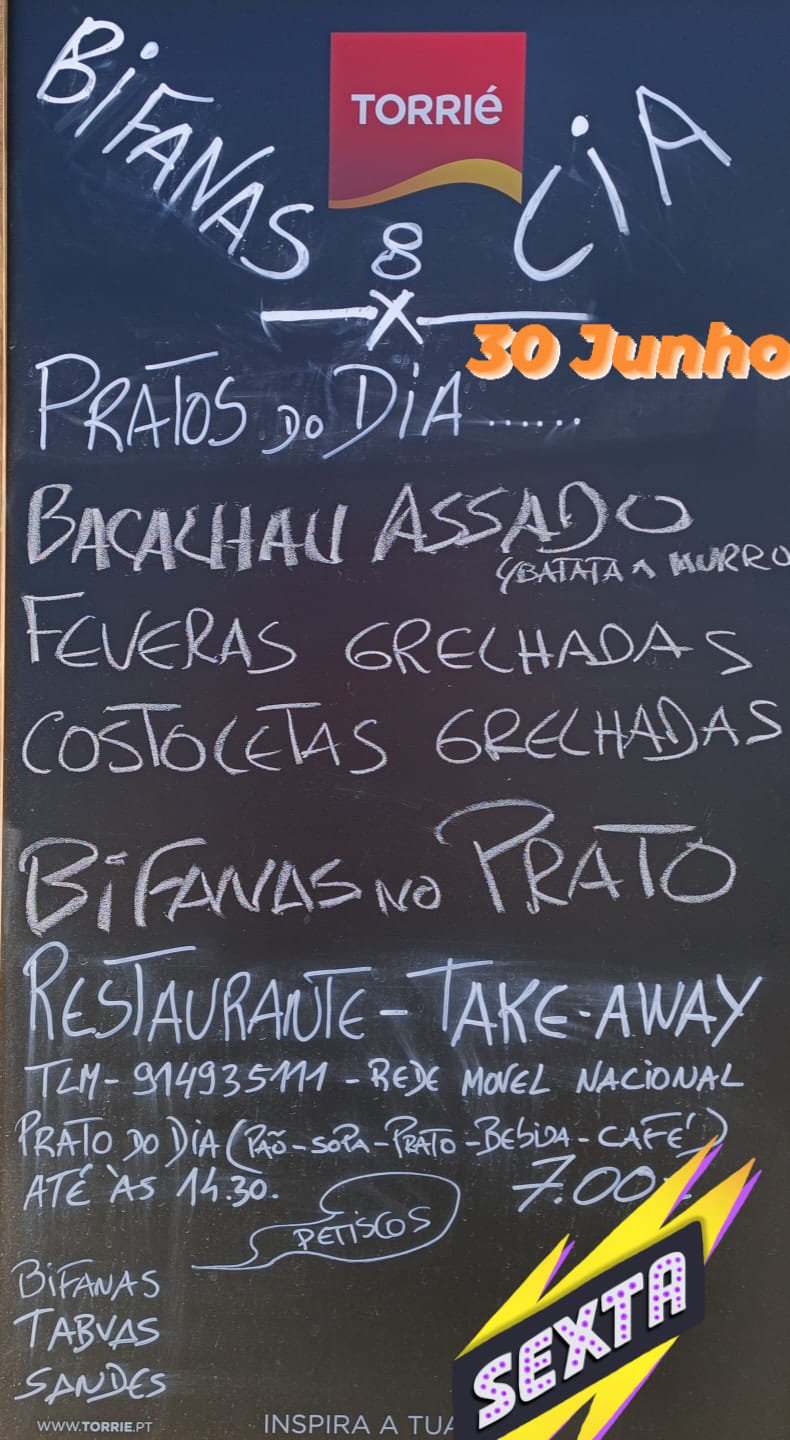 TORRIÉ
BIFANAS & CIA
X
30 Junho
PRATOS DO DIA......
BACALHAU ASSADO
C/BATATA A MURRO
FEVERAS GRELHADAS
COSTOLETAS GRELHADAS
BIFANAS NO PRATO
RESTAURANTE - TAKE-AWAY
TLM - 914935111 - REDE MOVEL NACIONAL
PRATO DO DIA (PAÕ - SOPA - PRATO - BEBIDA - CAFÉ)
ATÉ ÀS 14.30. 7.00
PETISCOS
BIFANAS
TABUAS
SANDES
SEXTA
WWW.TORRIE.PT INSPIRA A TUA